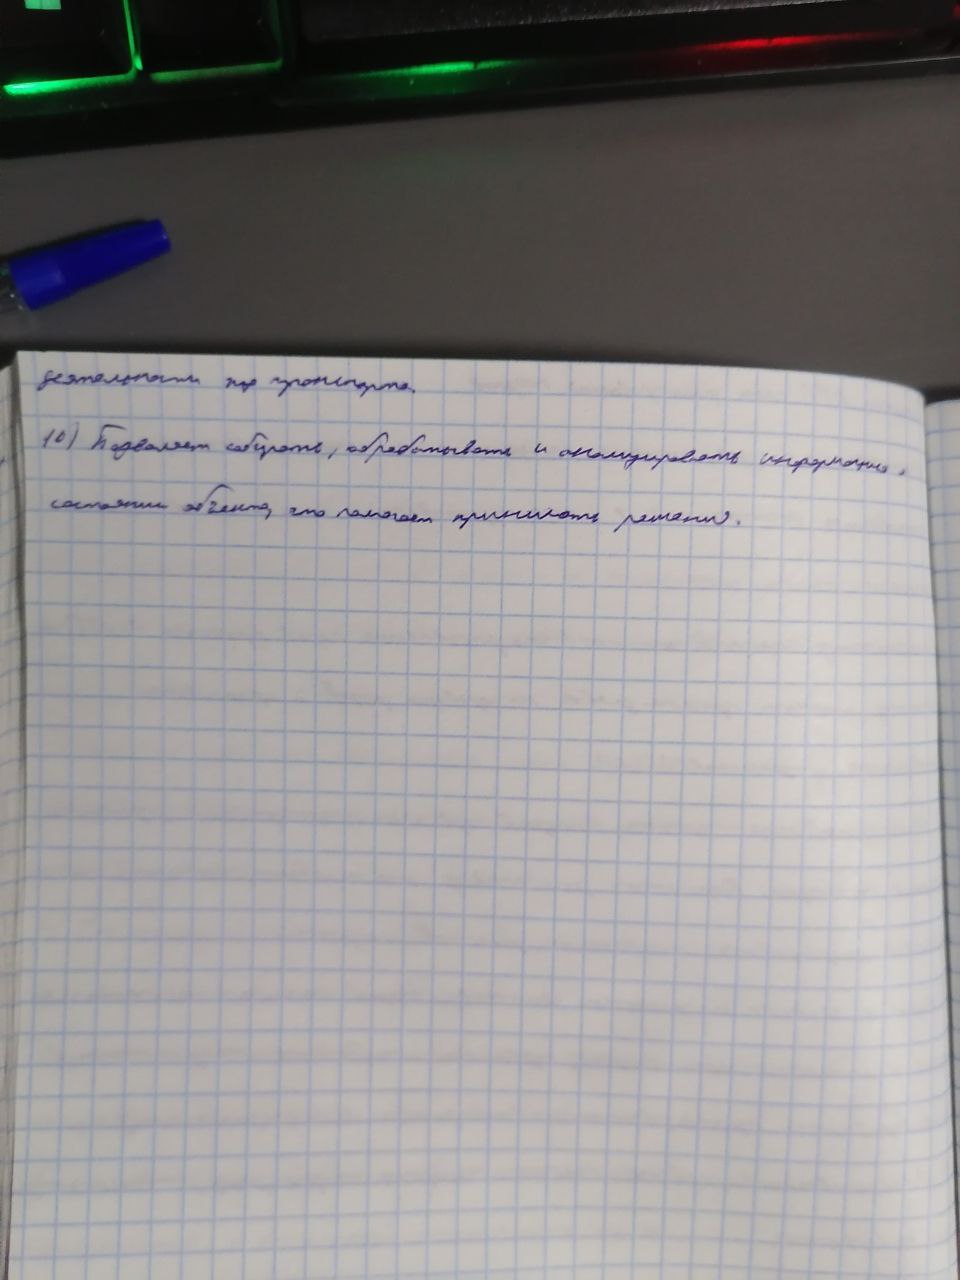 деятельности жд транспорта.
10) Позволяет собирать, обрабатывать и анализировать информацию о
состоянии объекта, что помогает принимать решения.